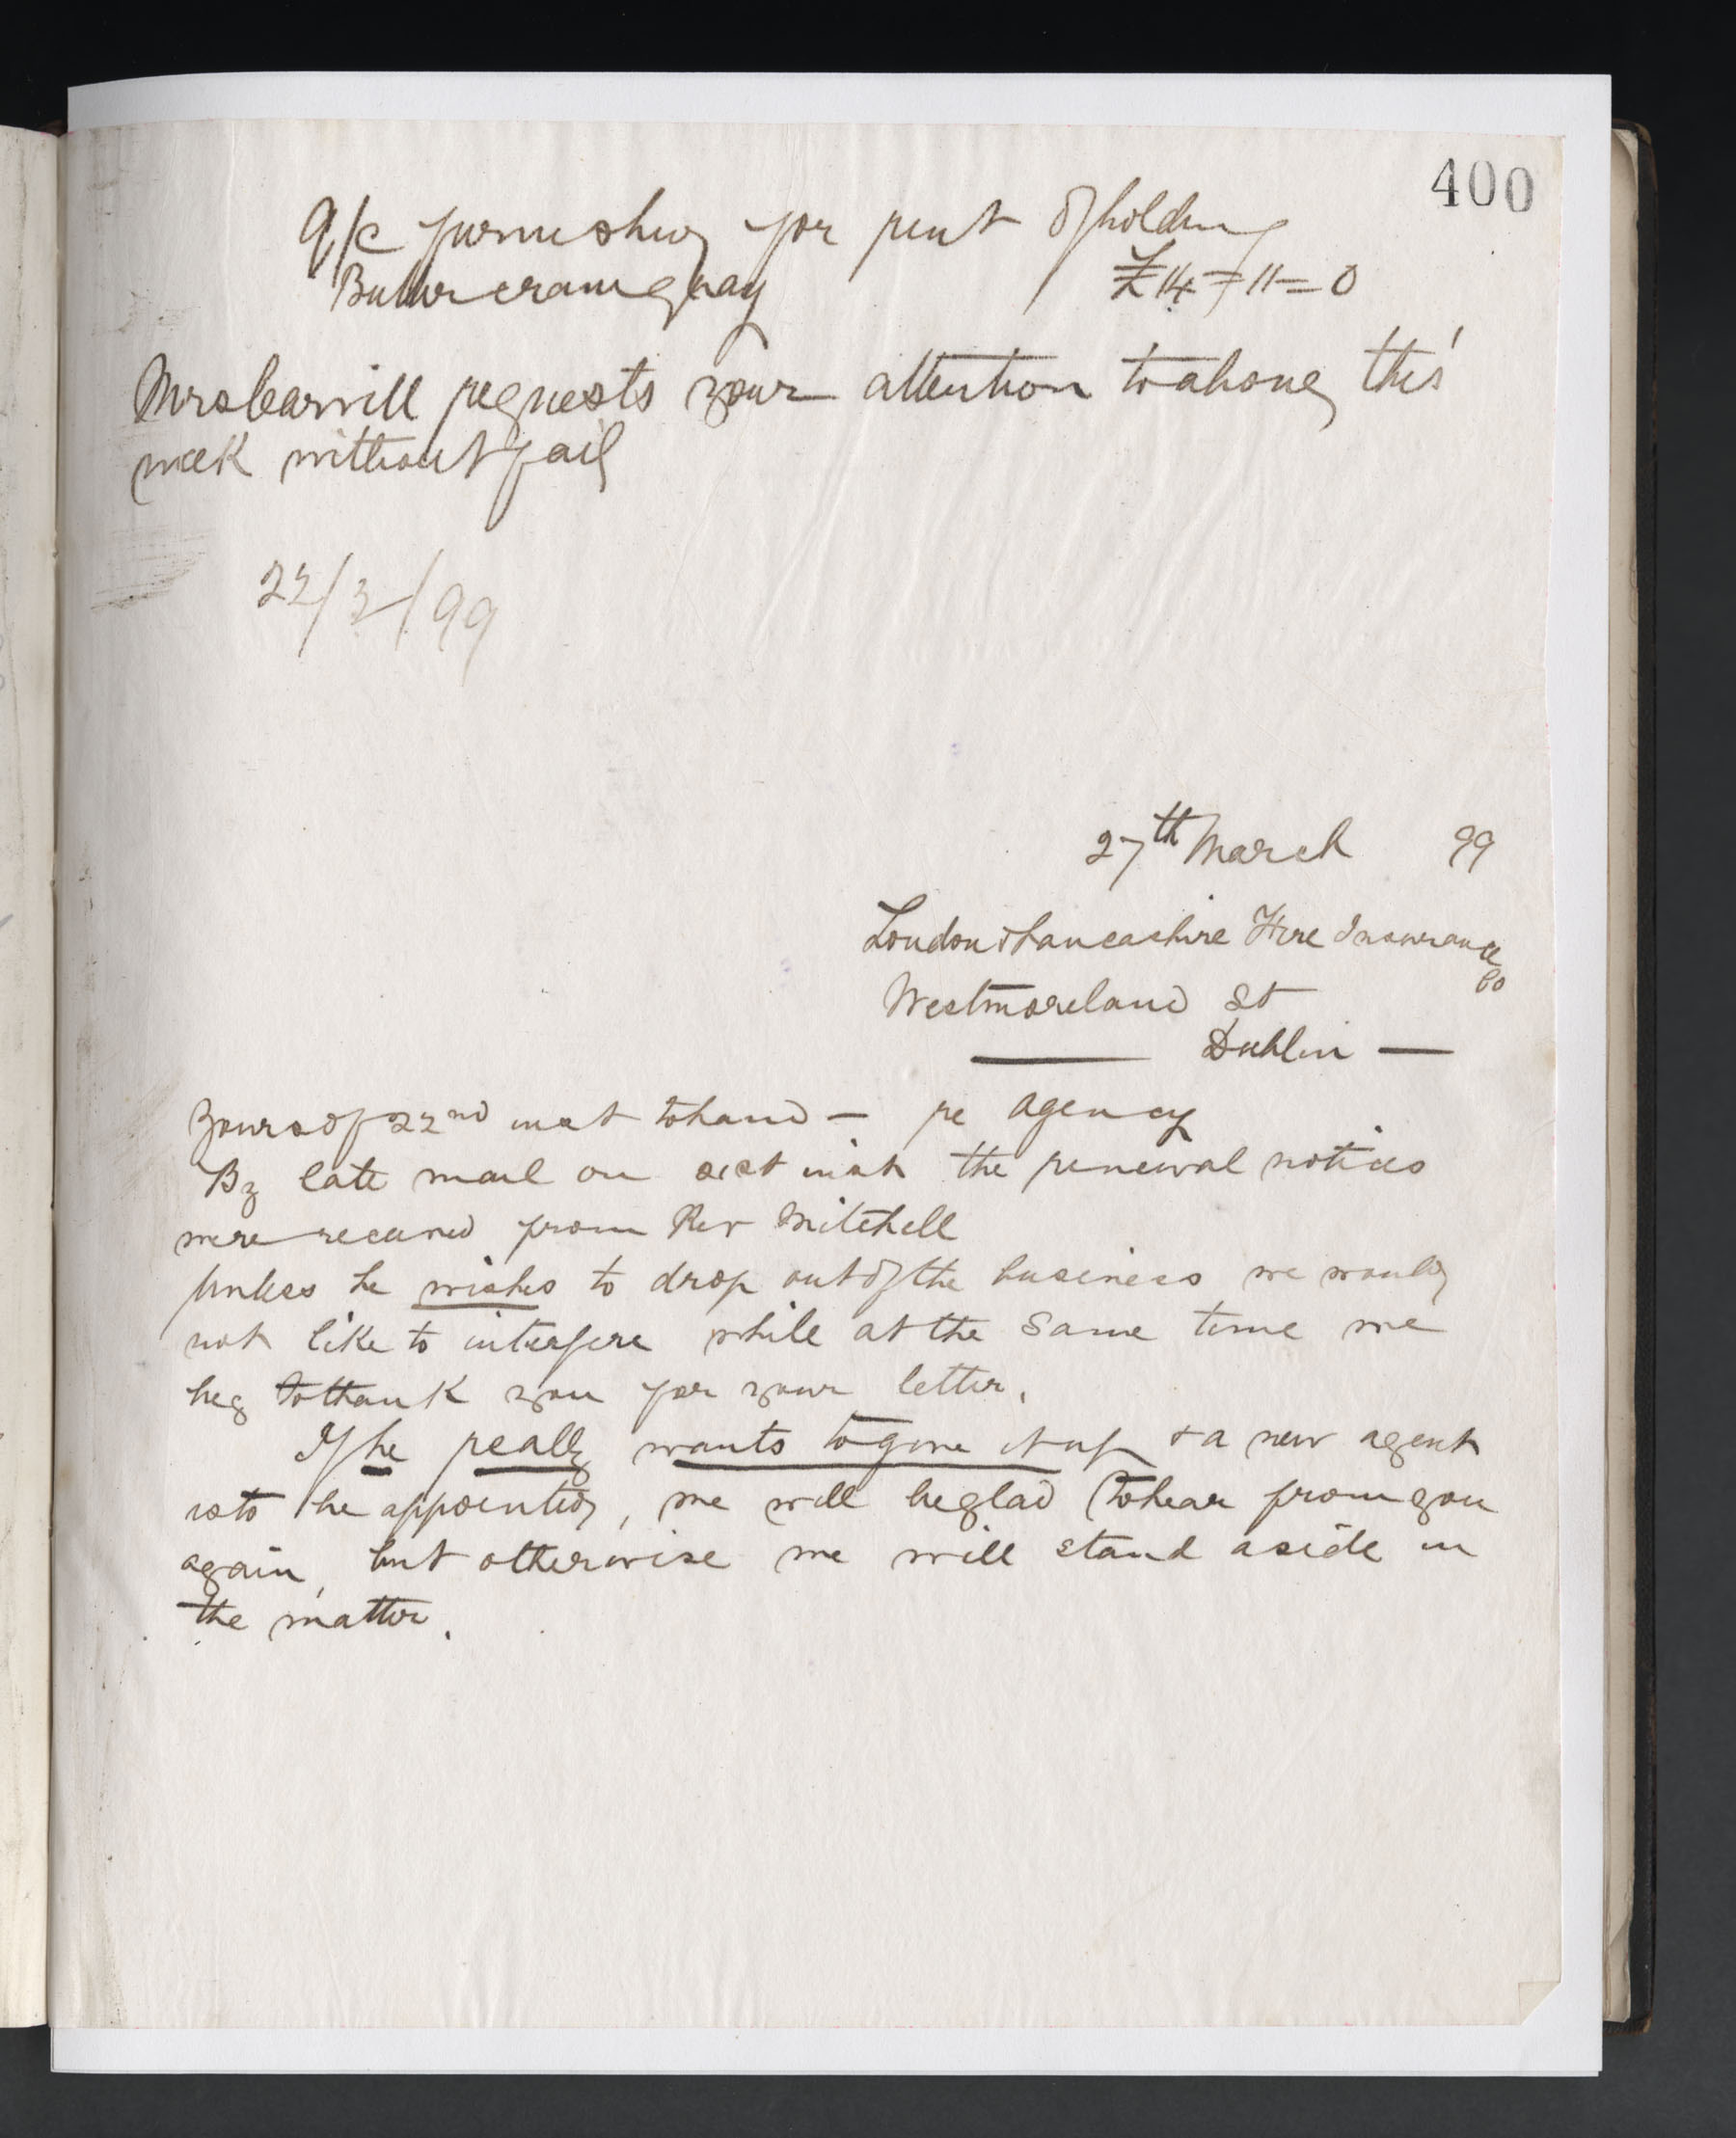 400
a/c furnished for rent of holding
£14 = 11 = 0
Mrs Carvill requests your attention to above, this
week without fail
22/3/99
27th March 99
London & Lancashire Fire Insurance
Co
Westmoreland St
Dublin —
Yours of 22nd inst to hand — re agency
By late mail on 21st inst the renewal notices
were received from Rev Mitchell
Unless he wishes to drop out of the business we would
not like to interfere while at the same time we
beg to thank you for your letter.
If he really wants to give it up & a new agent
is to be appointed, we will be glad to hear from you
again, but otherwise we will stand aside in
the matter.